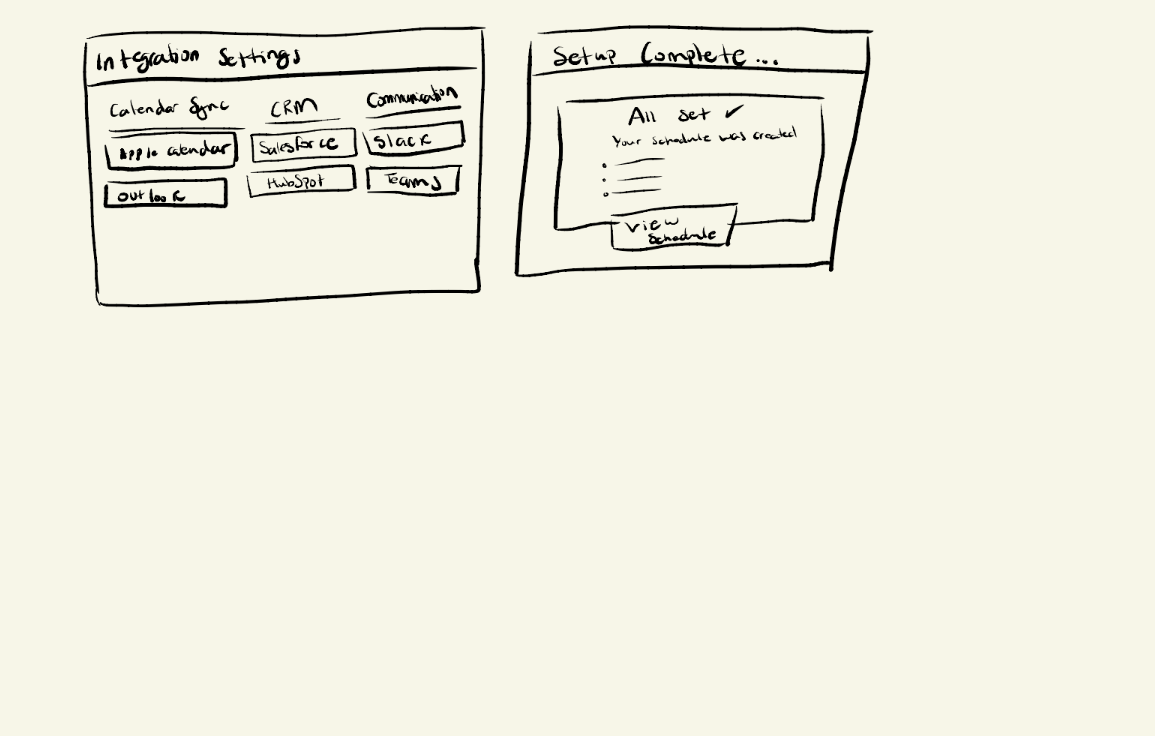 Integration Settings
Calendar Sync
Apple Calendar
Outlook
CRM
Salesforce
HubSpot
Communication
Slack
Teams
Setup Complete...
All set ✓
Your schedule was created
View
Schedule